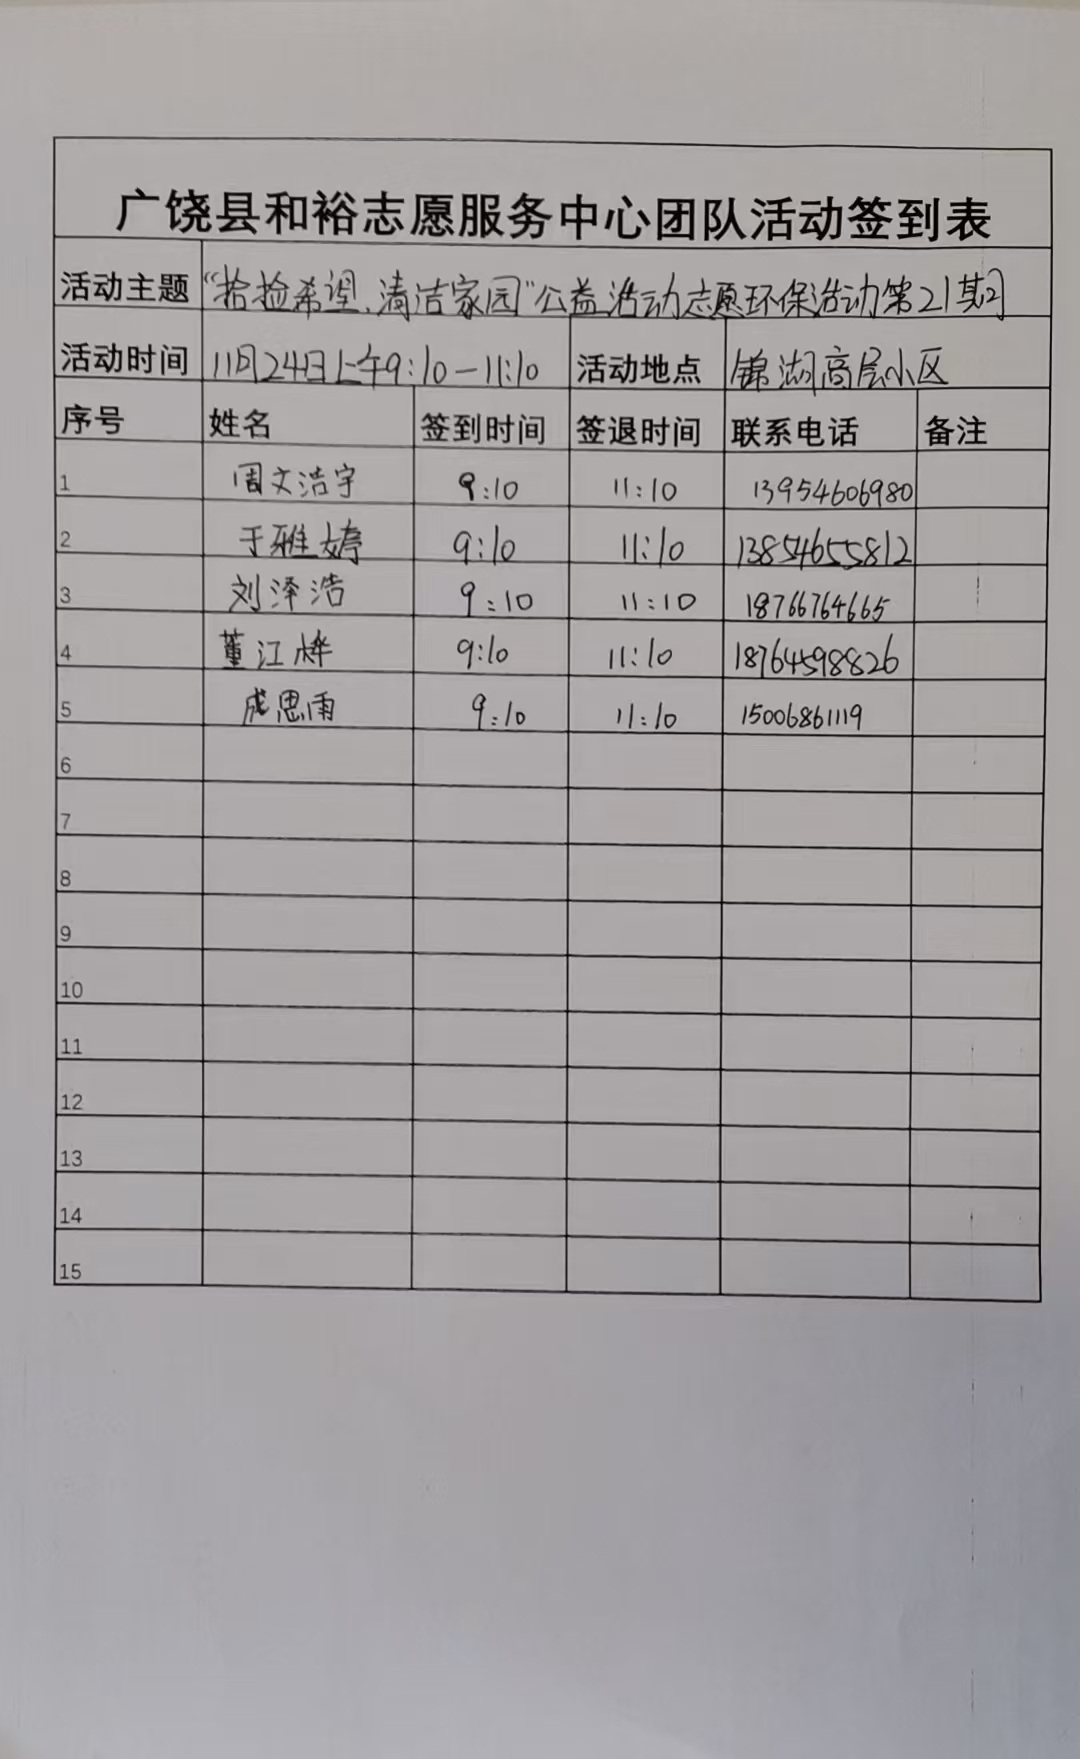 广饶县和裕志愿服务中心团队活动签到表
活动主题 “拾捡希望、清洁家园”公益活动志愿环保活动第21期
活动时间 11月24日上午9:10-11:10 活动地点 锦湖高层小区
序号 姓名 签到时间 签退时间 联系电话 备注
1 周文浩宇 9:10 11:10 13954606980
2 于雅婷 9:10 11:10 13854655812
3 刘泽浩 9:10 11:10 18766764665
4 董江烨 9:10 11:10 18764598826
5 成思雨 9:10 11:10 15006861119
6
7
8
9
10
11
12
13
14
15